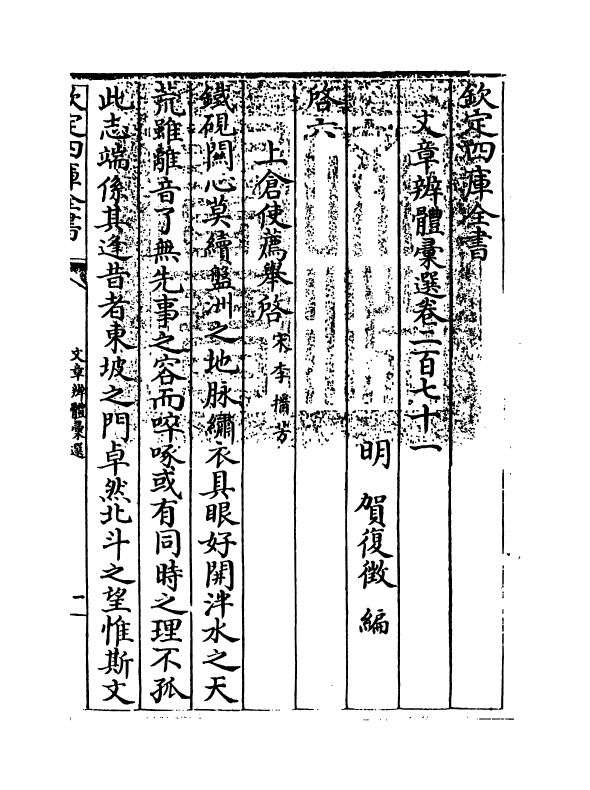 欽定四庫全書
文章辨體彚選卷二百七十一
明 賀復徵 編
啓六
上倉使薦舉啓 宋李搢芳
鐵硯闗心莫續盤洲之地脉繡衣具眼好開泮水之天
荒雖離音了無先事之容而啐啄或有同時之理不孤
此志端係其逢昔者東坡之門卓然北斗之望惟斯文
欽定四庫全書
文章辨體彚選
一